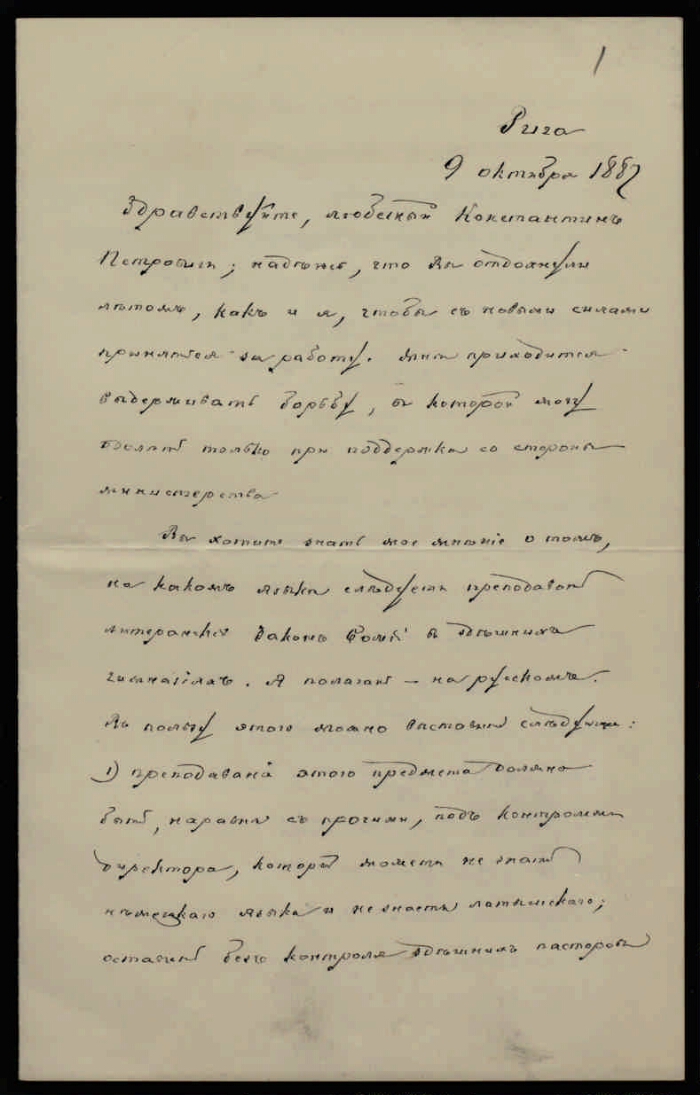 1
Рига
9 октября 1887
Здравствуйте, любезный Константинъ
Петровичъ; надѣюсь, что Вы отдохнули
лѣтомъ, какъ и я, чтобы съ новыми силами
приняться за работу. Мнѣ приходится
выдерживать борьбу, въ которой могу
только при поддержкѣ со стороны
министерства
Вы хотите знать мое мнѣніе о томъ,
на какомъ языкѣ слѣдуетъ преподавать
лютеранскій Законъ Божій въ здѣшнихъ
гимназіяхъ. Я полагаю — на русскомъ.
Въ пользу этого можно выставить слѣдующее:
1) преподаваніе этого предмета должно
быть, наравнѣ съ прочими, подъ контролемъ
директора, который можетъ не знать
нѣмецкаго языка и не знаетъ латышскаго;
оставить безъ контроля здѣшнихъ пасторовъ